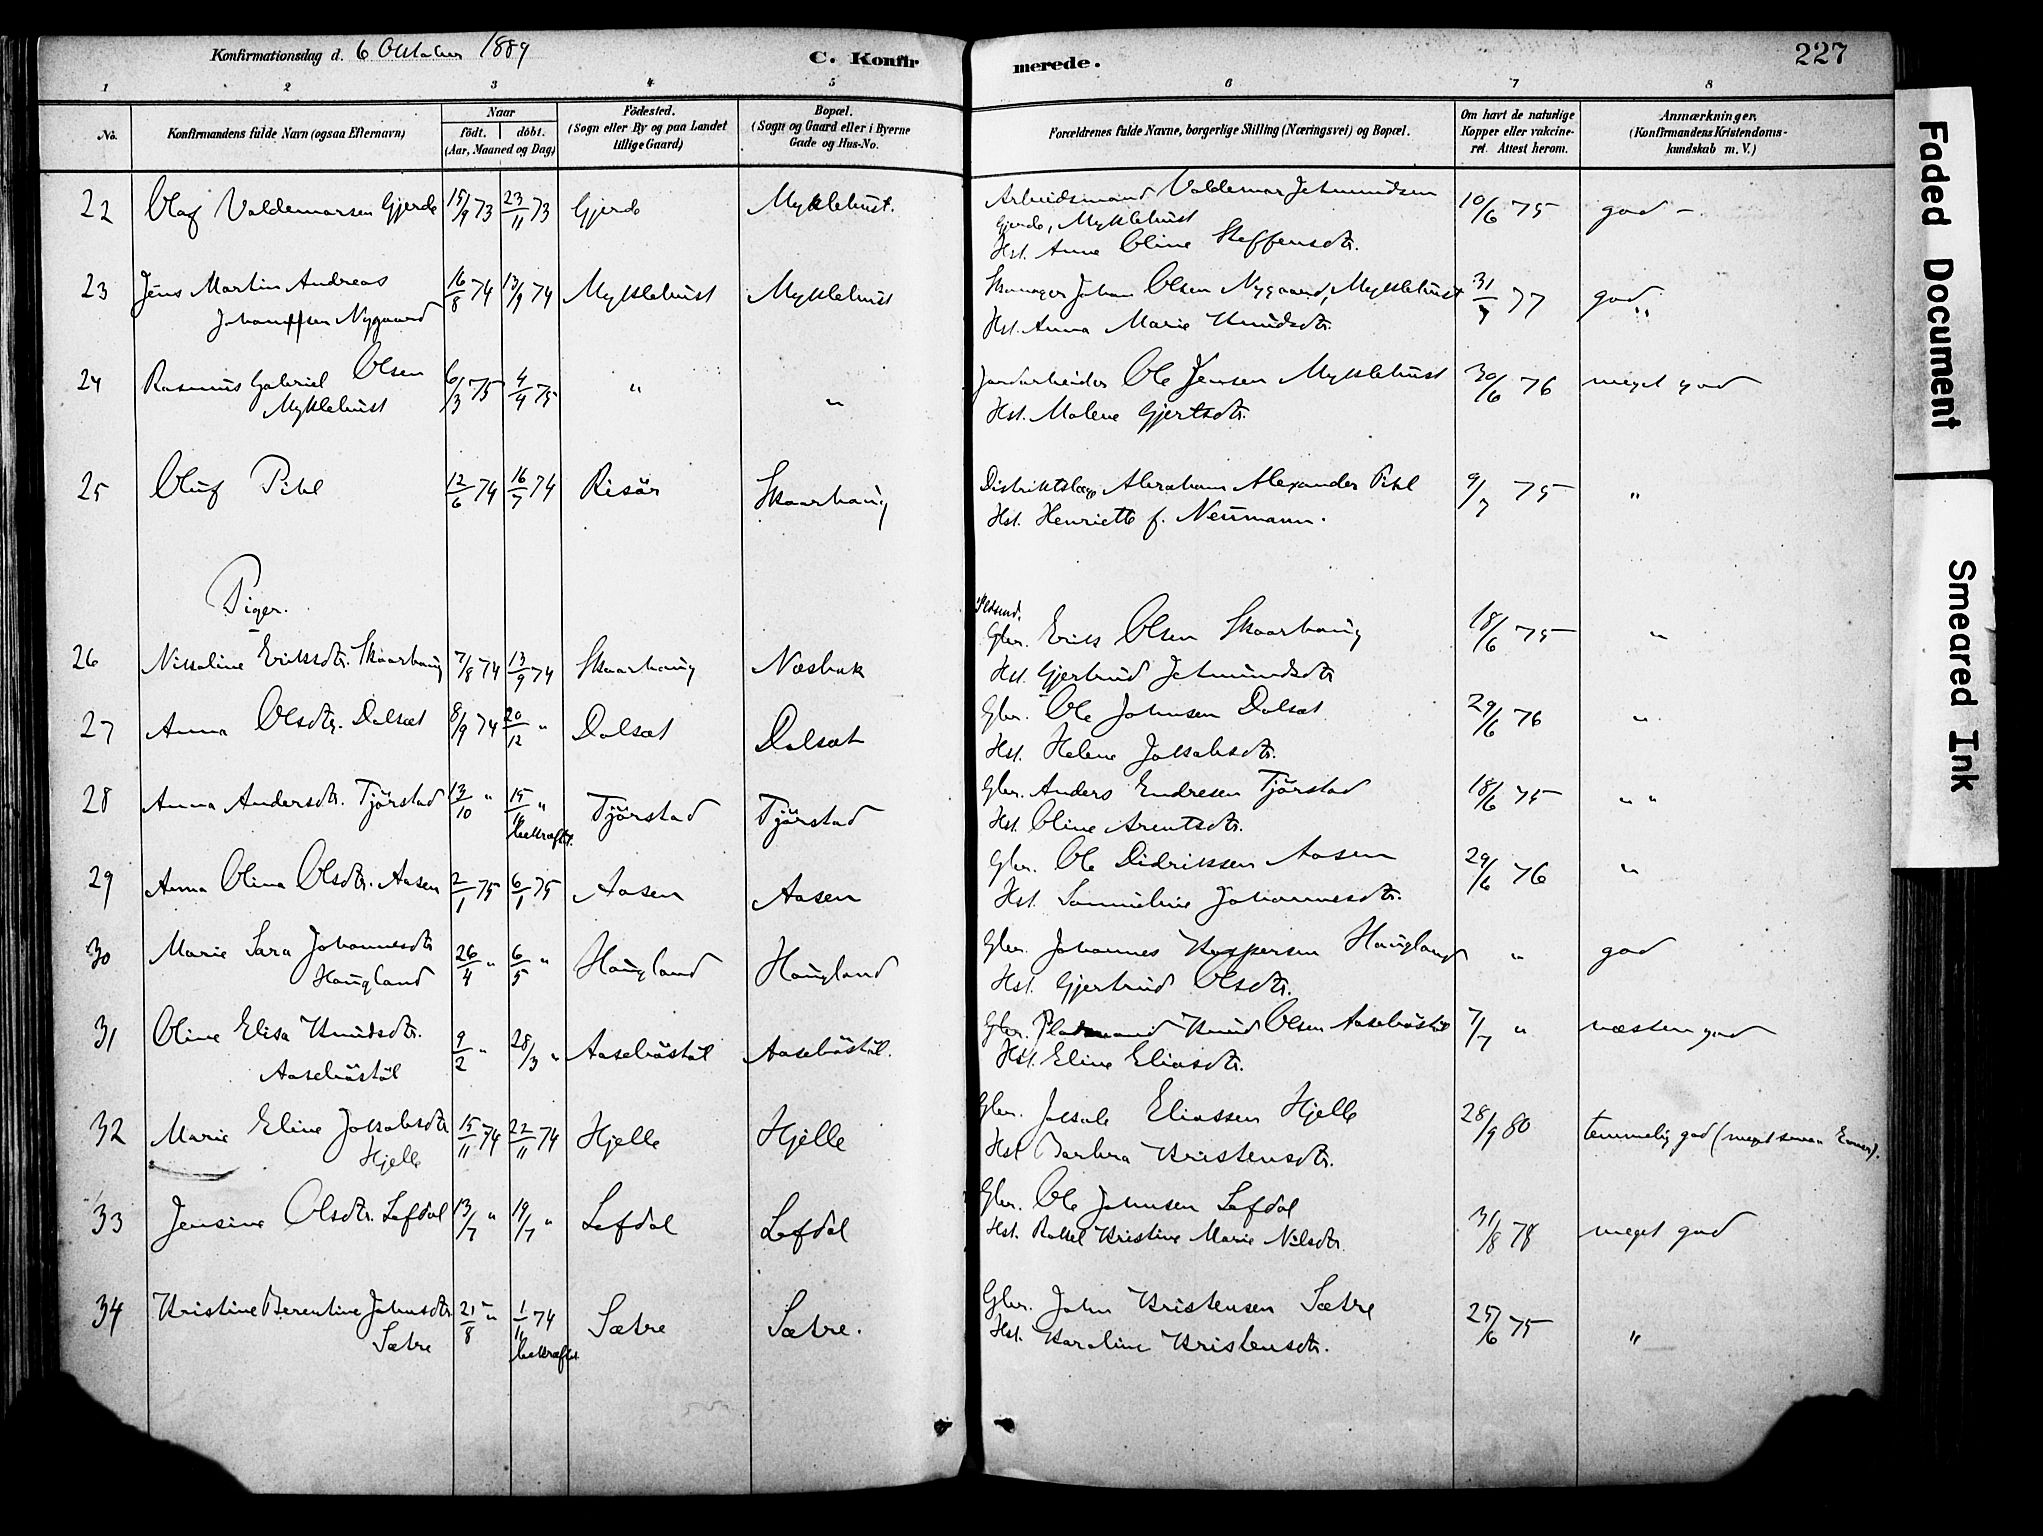 Konfirmationsdag d. 6 October 1889
C. Konfirmerede.
227
1 2 3 4 5 6 7 8
No.
Konfirmandens fulde Navn (ogsaa Efternavn)
Naar
födt. döbt.
(Aar, Maaned og Dag)
Födested.
(Sogn eller By og paa Landet
tillige Gaard)
Bopæl.
(Sogn og Gaard eller i Byerne
Gade og Hus-No.
Forældrenes fulde Navne, borgerlige Stilling (Næringsvei) og Bopæl.
Om havt de naturlige
Kopper eller vakcine-
ret. Attest herom.
Anmærkninger.
(Konfirmandens Kristendoms-
kundskab m. V.)
22 Olaf Valdemarsen Gjerde 15/9 73 23/11 73 Gjerde Myklebust. Arbeidsmand Valdemar Jetmundsen 10/6 75 god –
Gjerde, Myklebust
Hst. Anne Oline Steffensdtr.
23 Jens Martin Andreas 16/8 74 13/9 74 Myklebust Myklebust Skomager Johan Olsen Nygaard, Myklebust 31/7 77 god "
Johanssen Nygaard Hst. Anna Marie Knudsdtr.
24 Rasmus Gabriel Olsen 6/3 75 4/4 75 " " Jordarbeider Ole Jensen Myklebust 30/6 76 meget god
Myklebust Hst. Malene Gjertsdtr.
25 Oluf Pihl 12/6 74 16/7 74 Risör Skaarhaug Distriktslæge Abraham Alexander Pihl 9/7 75 "
Hst. Henriette f. Neumann.
Piger.
Pldsmd.
26 Nikoline Eriksdtr. Skaarhaug 7/8 74 13/9 74 Skaarhaug Næsbak Gbr. Erik Olsen Skaarhaug 18/6 75 "
Hst. Gjertrud Jetmundsdtr
27 Anna Olsdtr. Dalsæt 8/9 74 20/12 " Dalsæt Dalsæt Gbr. Ole Johnsen Dalsæt 29/6 76 "
Hst. Helene Jakobsdtr.
28 Anna Andersdtr. Tjörstad 13/10 " 15/11 " Tjörstad Tjörstad Gbr. Anders Endresen Tjörstad 18/6 75 " "
bekræftet. Hst. Oline Arentsdtr.
29 Anna Olina Olsdtr. Aasen 2/1 75 6/1 75 Aasen Aasen Gbr. Ole Didriksen Aasen 29/6 76 "
Hst. Samueline Johannesdtr.
30 Marie Sara Johannesdtr 26/4 " 6/5 " Haugland Haugland Gbr. Johannes Kaspersen Haugland " god
Haugland Hst. Gjertrud Olsdtr.
31 Oline Elisa Knudsdtr. 9/2 " 28/3 " Aaseböstöl Aaseböstöl. Gbr. Pladsmand Knud Olsen Aaseböstöl 7/7 " næsten god
Aaseböstöl Hst. Eline Eliasdtr.
32 Marie Eline Jakobsdtr 15/11 74 22/11 74 Hjelle Hjelle Gbr. Jakob Eliassen Hjelle 28/9 80 temmelig god (meget
Hjelle Hst Barbra Kristensdtr.
33 Jensine Olsdtr. Lefdal 13/7 " 19/7 " Lefdal Lefdal Gbr. Ole Johnsen Lefdal 31/8 78 meget god
Hst. Rakel Kristine Marie Nilsdtr.
34 Kristine Berentine Johnsdtr 25/8 " 1/11 74 Sætre Sætre. Gbr. John Kristensen Sætre 25/6 75 "
Sætre bekræftet Hst. Karoline Kristensdtr.
Faded Document
Smeared Ink